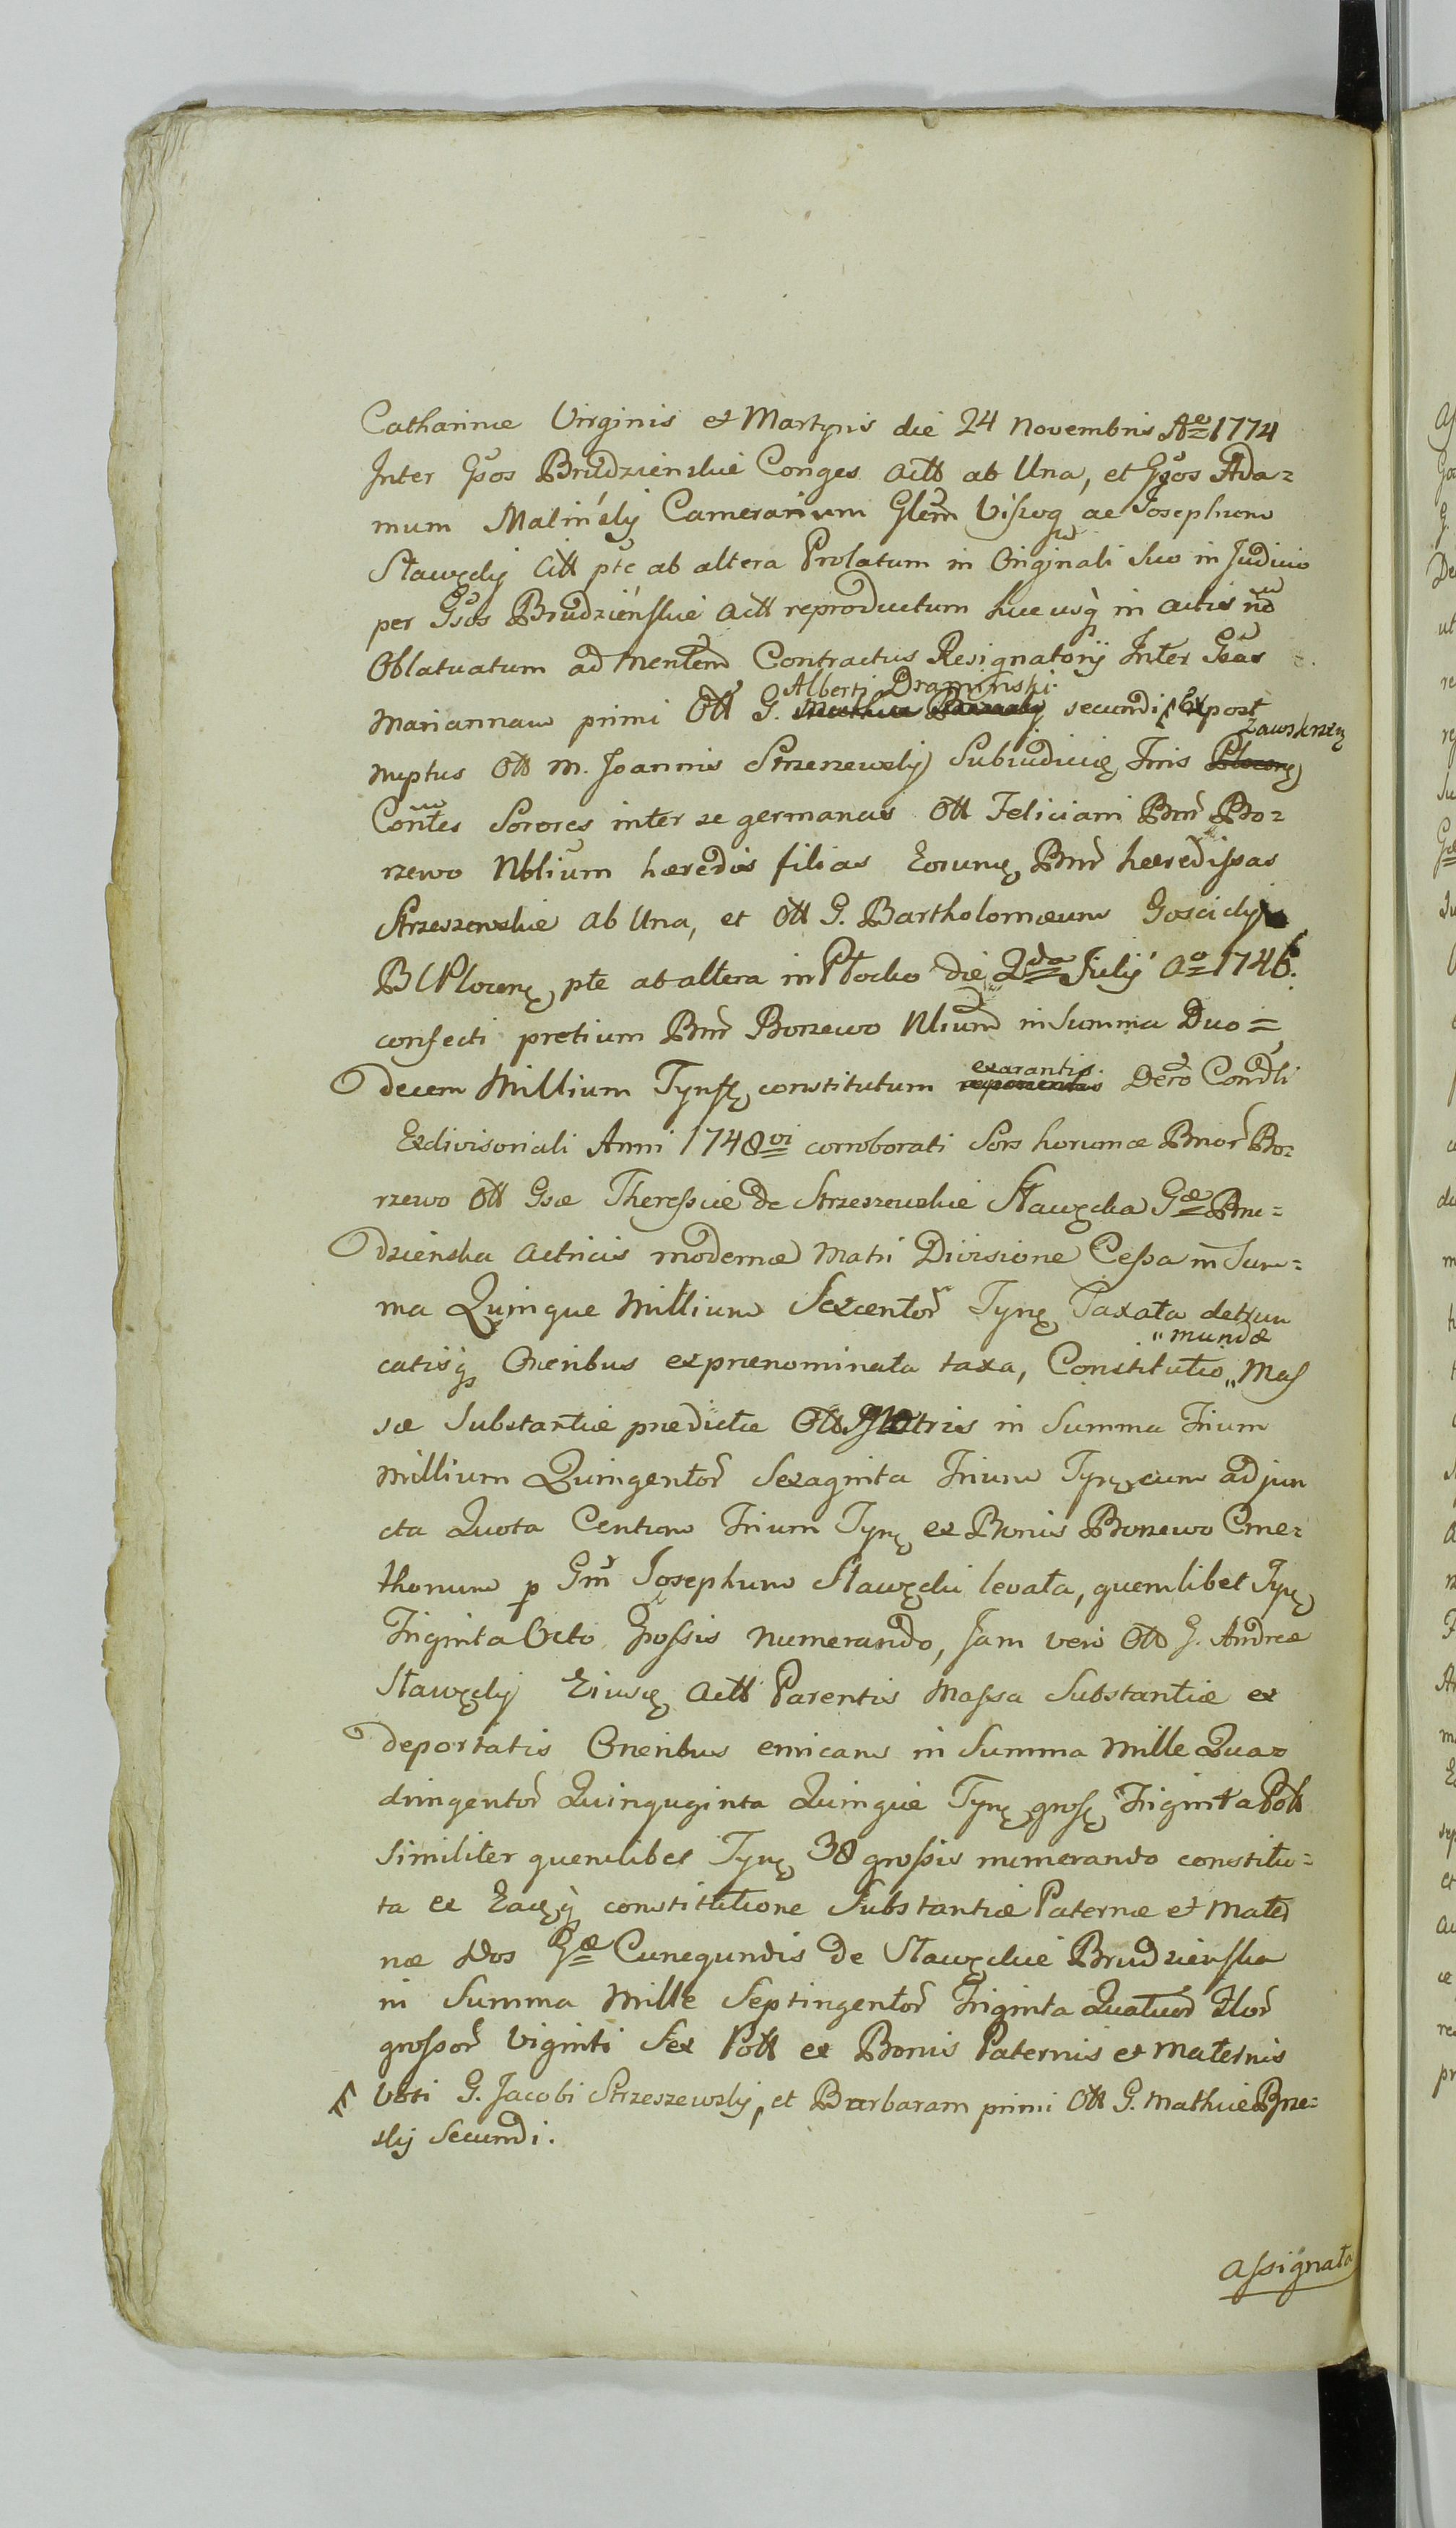 Catharinæ Virginis et Martyris die 24 Novembris Ao 1774
Inter Gsos Brudzienskie Conges Actt ab Una, et Gsos Ada=
mum Malińsly Camerarium Glem Viszog ac Josephum
Sławęcky Citt pte ab altera Prolatum in Originali suo in Judicio
per Gsos Brudzieńskie Actt reproductum huc usq in actis no
Oblatuatum ad mentem Contractus Resignatorij Inter Gsas
Mariannam primi Ott G. Alberti Dramiński secundi Ex post
nuptus Ott M. Joannis Strzeszewsky Subiudicis Tris Zawskrzen
Contes Sorores inter se germanas Ott Feliciani Bnr Bo=
rzewo Nblium hæredis filias Eorumq Bnr hæredissas
Strzeszewskie ab Una, et Ott G. Bartholomæum Goscicky
B C Plocen pte ab altera in Płocko die 2da Julij ao 1746.
confecti pretium Bnr Borzewo Nlium in Summa Duo=
decem Millium Tynff constitutum exarantis Dero Condli
Exdivisoriali Anni 1748vi corroborati Sors horumce Bnor Bo=
rzewo Ott Gsæ Theressiæ de Strzeszewskie Sławęcka Gæ Bru=
dzienska Actricis modernæ Matri Divisione Cessa in Sum=
ma Quinque Millium Sexcentor Tynf Taxata detrun
catisq Oneribus ex prænominata taxa, Constitutio " mundæ Mas
sæ Substantiæ prædictæ Ott Matris in Summa Trium
Millium Quingentor Sexaginta Trium Tynf cum adjun
cta Quota Centum Trium Tynf ex Bonis Borzewo Cme=
thonum p Gm Josephum Sławęcki levata, quemlibet Tynf
Triginta Octo Grossis numerando, Jam vero Ott G. Andreæ
Sławęcky Eiusq Actt Parentis Massa Substantiæ ex
deportatis Oneribus emicans in Summa Mille Qua=
dringentor Quinquginta Quinque Tynf gross Triginta Poll
Similiter quemlibet Tynf 38 grossis numerando constitu=
ta ex Eaq constitutione Substantiæ Paternæ et Mater
næ Dos Gæ Cunegundis de Sławęckie Brudzienska
in Summa Mille Septingentor Triginta Quatuor Flor
grossor Viginti Sex Poll ex Bonis Paternis et Maternis
Voti G. Jacobi Strzeszewsky, et Barbaram primi Ott G. Mathiæ Brze=
sky Secundi.
Assignata